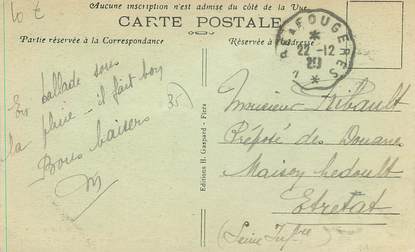 10 €
Aucune inscription n'est admise du côté de la Vue.
CARTE POSTALE
Partie réservée à la Correspondance
Réservée à l'Adresse
FOUGÈRES
22-12
En ballade sous
la pluie - il fait bon
Bons baisers
M
35
Editions H. Gaspard - Flers
Monsieur Thibault
Préposé des Douanes
Maison
Etretat
(Seine Infre)